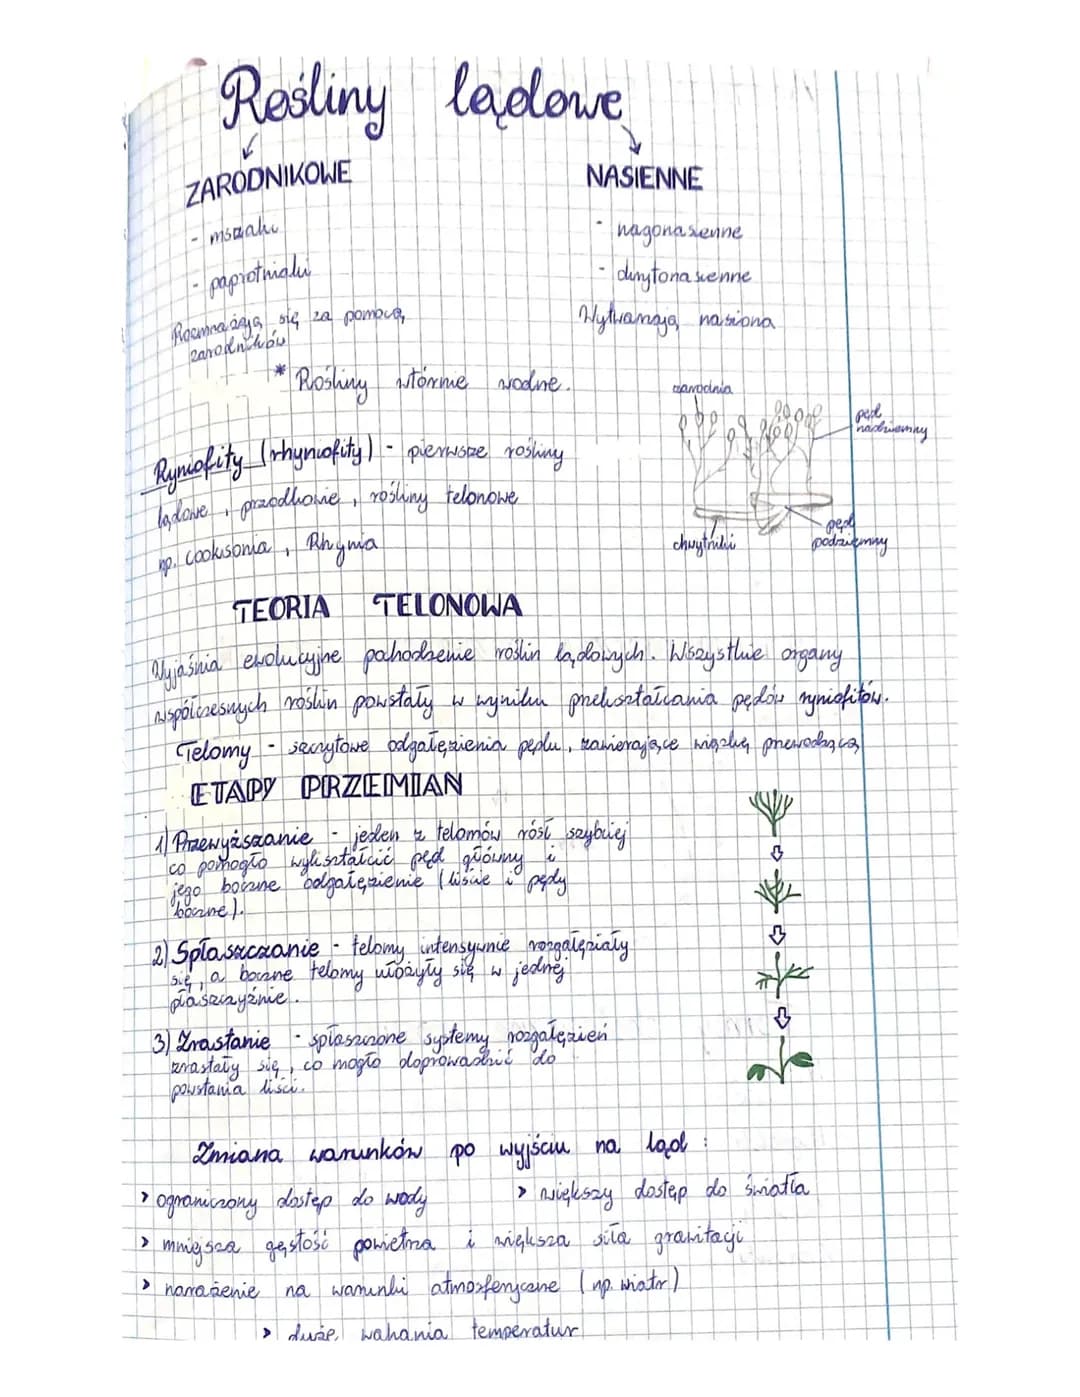 Rośliny lądowe
ZARODNIKOWE
NASIENNE
- mszaki
- nagonasienne
- paprotniki
- okrytonasienne
Rozmnażają się za pomocą
zarodników
Wytwarzają nasiona
* Rośliny wtórnie wodne.
zarodnia
pęd
nadziemny
Ryniofity (rhyniofity) - pierwsze rośliny
lądowe, przodkowie, rośliny telonowe
np. Cooksonia, Rhynia
chwytniki
pęd
podziemny
TEORIA TELONOWA
Wyjaśnia ewolucyjne pochodzenie roślin lądowych. Wszystkie organy
współczesnych roślin powstały w wyniku przekształcania pędów ryniofitów.
Telomy - szczytowe odgałęzienia pędu, zawierające wiązkę przewodzącą
ETAPY PRZEMIAN
1) Przewyższanie - jeden z telomów rósł szybciej
co pomogło wykształcić pęd główny i
jego boczne odgałęzienie (liście i pędy
boczne).
2) Spłaszczanie - telomy intensywnie rozgałęziały
się, a boczne telomy ułożyły się w jednej
płaszczyźnie.
3) Zrastanie - spłaszczone systemy rozgałęzień
zrastały się, co mogło doprowadzić do
powstania liści.
Zmiana warunków po wyjściu na ląd :
> ograniczony dostęp do wody
> większy dostęp do światła
> mniejsza gęstość powietrza i większa siła grawitacji
> narażenie na warunki atmosferyczne (np. wiatr)
> duże wahania temperatur